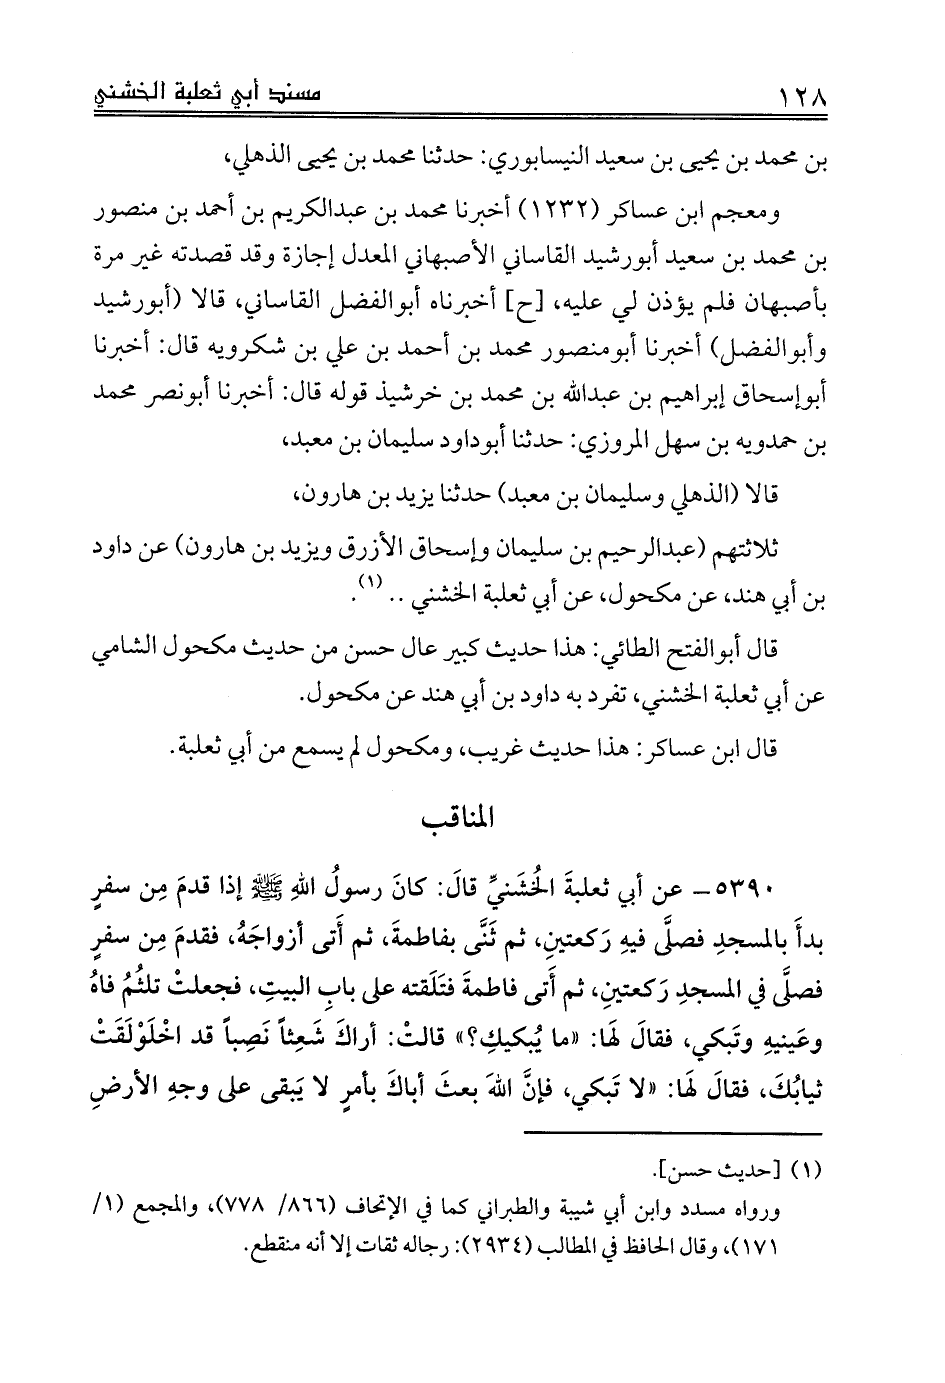 ١٢٨ مسند أبي ثعلبة الخشني
بن محمد بن يحيى بن سعيد النيسابوري: حدثنا محمد بن يحيى الذهلي،
ومعجم ابن عساكر (١٢٣٢) أخبرنا محمد بن عبدالكريم بن أحمد بن منصور
بن محمد بن سعيد أبورشيد القاساني الأصبهاني المعدل إجازة وقد قصدته غير مرة
بأصبهان فلم يؤذن لي عليه، [ح] أخبرناه أبوالفضل القاساني، قالا (أبورشيد
وأبوالفضل) أخبرنا أبومنصور محمد بن أحمد بن علي بن شكرويه قال: أخبرنا
أبوإسحاق إبراهيم بن عبدالله بن محمد بن خرشيذ قوله قال: أخبرنا أبونصر محمد
بن حمدويه بن سهل المروزي: حدثنا أبوداود سليمان بن معبد،
قالا (الذهلي وسليمان بن معبد) حدثنا يزيد بن هارون،
ثلاثتهم (عبدالرحيم بن سليمان وإسحاق الأزرق ويزيد بن هارون) عن داود
بن أبي هند، عن مكحول، عن أبي ثعلبة الخشني .. (١).
قال أبوالفتح الطائي: هذا حديث كبير عال حسن من حديث مكحول الشامي
عن أبي ثعلبة الخشني، تفرد به داود بن أبي هند عن مكحول.
قال ابن عساكر: هذا حديث غريب، ومكحول لم يسمع من أبي ثعلبة.
المناقب
٥٣٩٠ـ عن أبي ثعلبةَ الخُشَنيِّ قالَ: كانَ رسولُ اللهِ ﷺ إذا قدمَ مِن سفرٍ
بدأَ بالمسجدِ فصلَّى فيهِ رَكعتينِ، ثم ثَنَّى بفاطمةَ، ثم أَتى أزواجَهُ، فقدمَ مِن سفرٍ
فصلَّى في المسجدِ رَكعتينِ، ثم أَتى فاطمةَ فتَلَقته على بابِ البيتِ، فجعلتْ تلثُمُ فاهُ
وعَينيهِ وتَبكي، فقالَ لَها: «ما يُبكيكِ؟» قالتْ: أراكَ شَعِثاً نَصِباً قد اخْلَوْلَقَتْ
ثيابُكَ، فقالَ لَها: «لا تَبكي، فإنَّ اللهَ بعثَ أباكَ بأمرٍ لا يَبقى على وجهِ الأرضِ
(١) [حديث حسن].
ورواه مسدد وابن أبي شيبة والطبراني كما في الإتحاف (٨٦٦/ ٧٧٨)، والمجمع (١/
١٧١)، وقال الحافظ في المطالب (٢٩٣٤): رجاله ثقات إلا أنه منقطع.